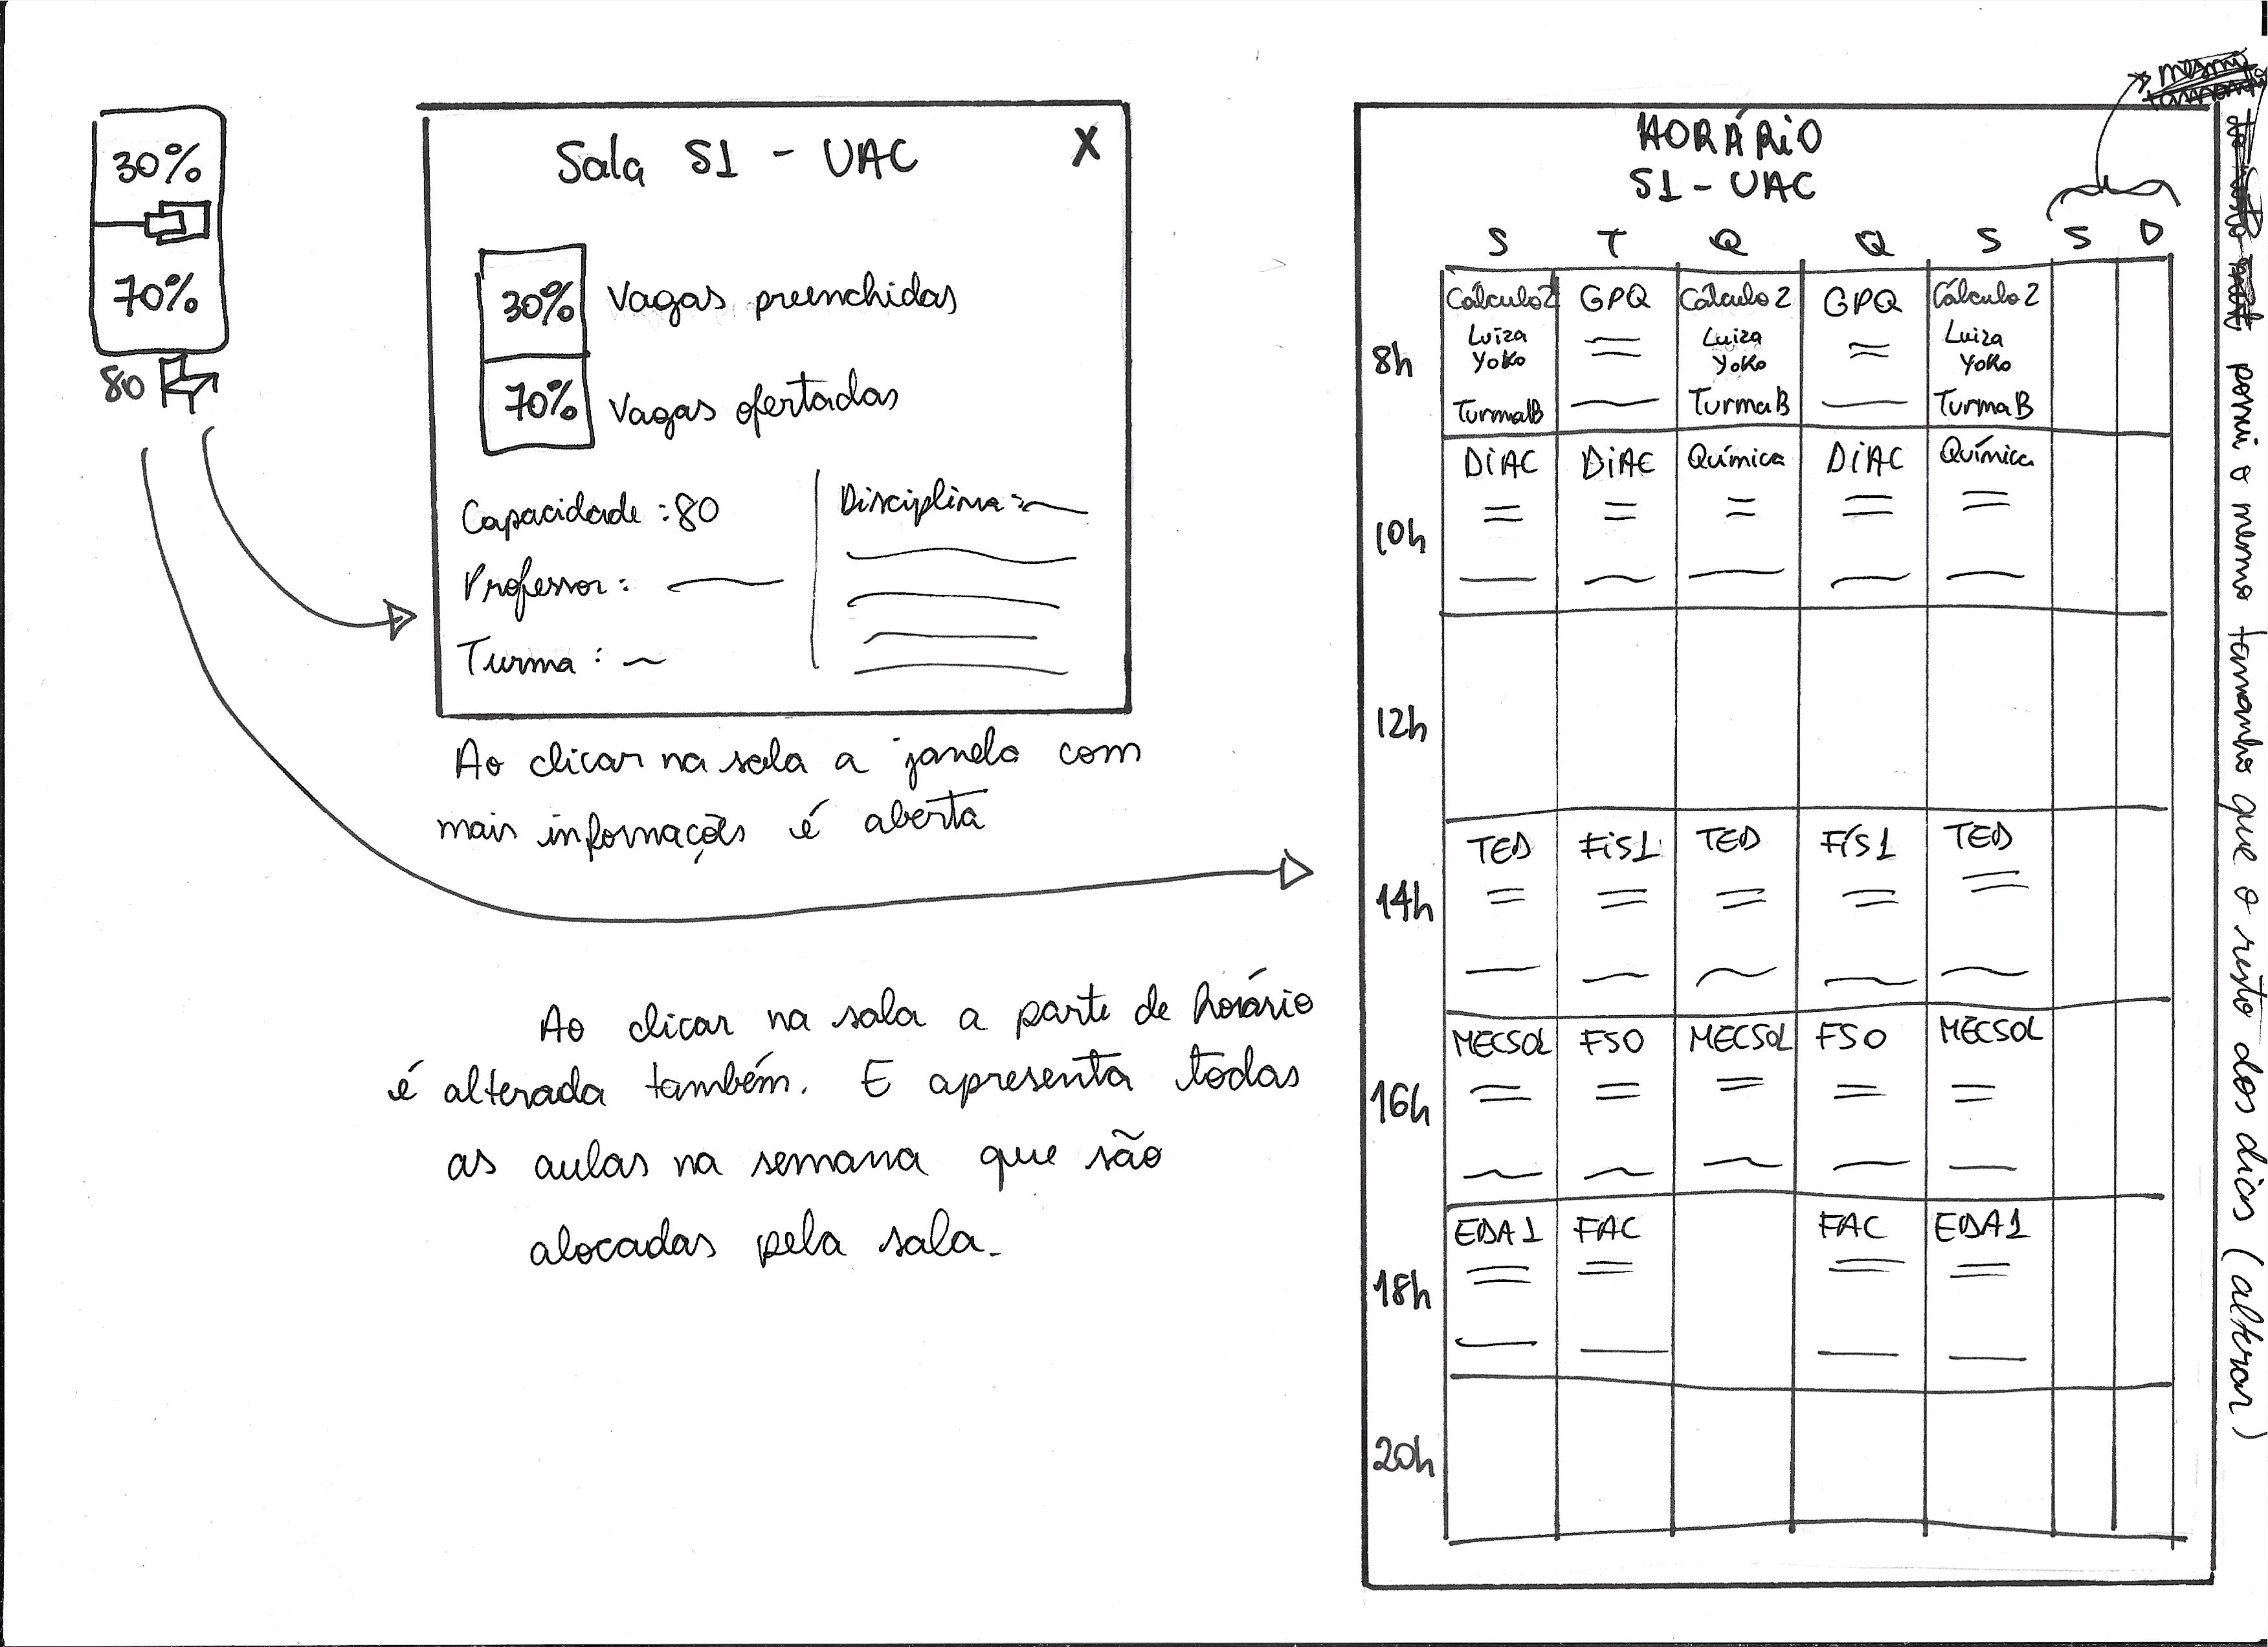 30%
70%
80
Sala S1 - UAC
X
30% Vagas preenchidas
70% Vagas ofertadas
Capacidade : 80
Professor :
Turma :
Disciplina :
Ao clicar na sala a janela com
mais informações é aberta
Ao clicar na sala a parte de horário
é alterada também. E apresenta todas
as aulas na semana que são
alocadas pela sala.
HORÁRIO
S1 - UAC
S T Q Q S S D
8h
Cálculo 2 GPQ Cálculo 2 GPQ Cálculo 2
Luiza Luiza Luiza
Yoko Yoko Yoko
Turma B Turma B Turma B
10h
DiAC DiAC Química DiAC Química
12h
14h
TED FiS1 TED FíS1 TED
16h
MECSOL FSO MECSOL FSO MECSOL
18h
EDA1 FAC FAC EDA1
20h
possui o mesmo tamanho que o resto dos dias (alterar)